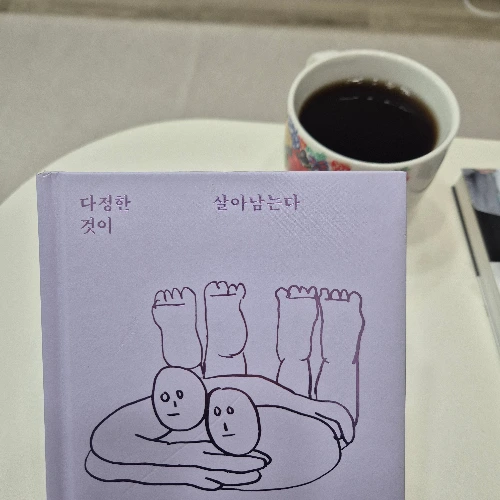 다정한 살아남는다
것이